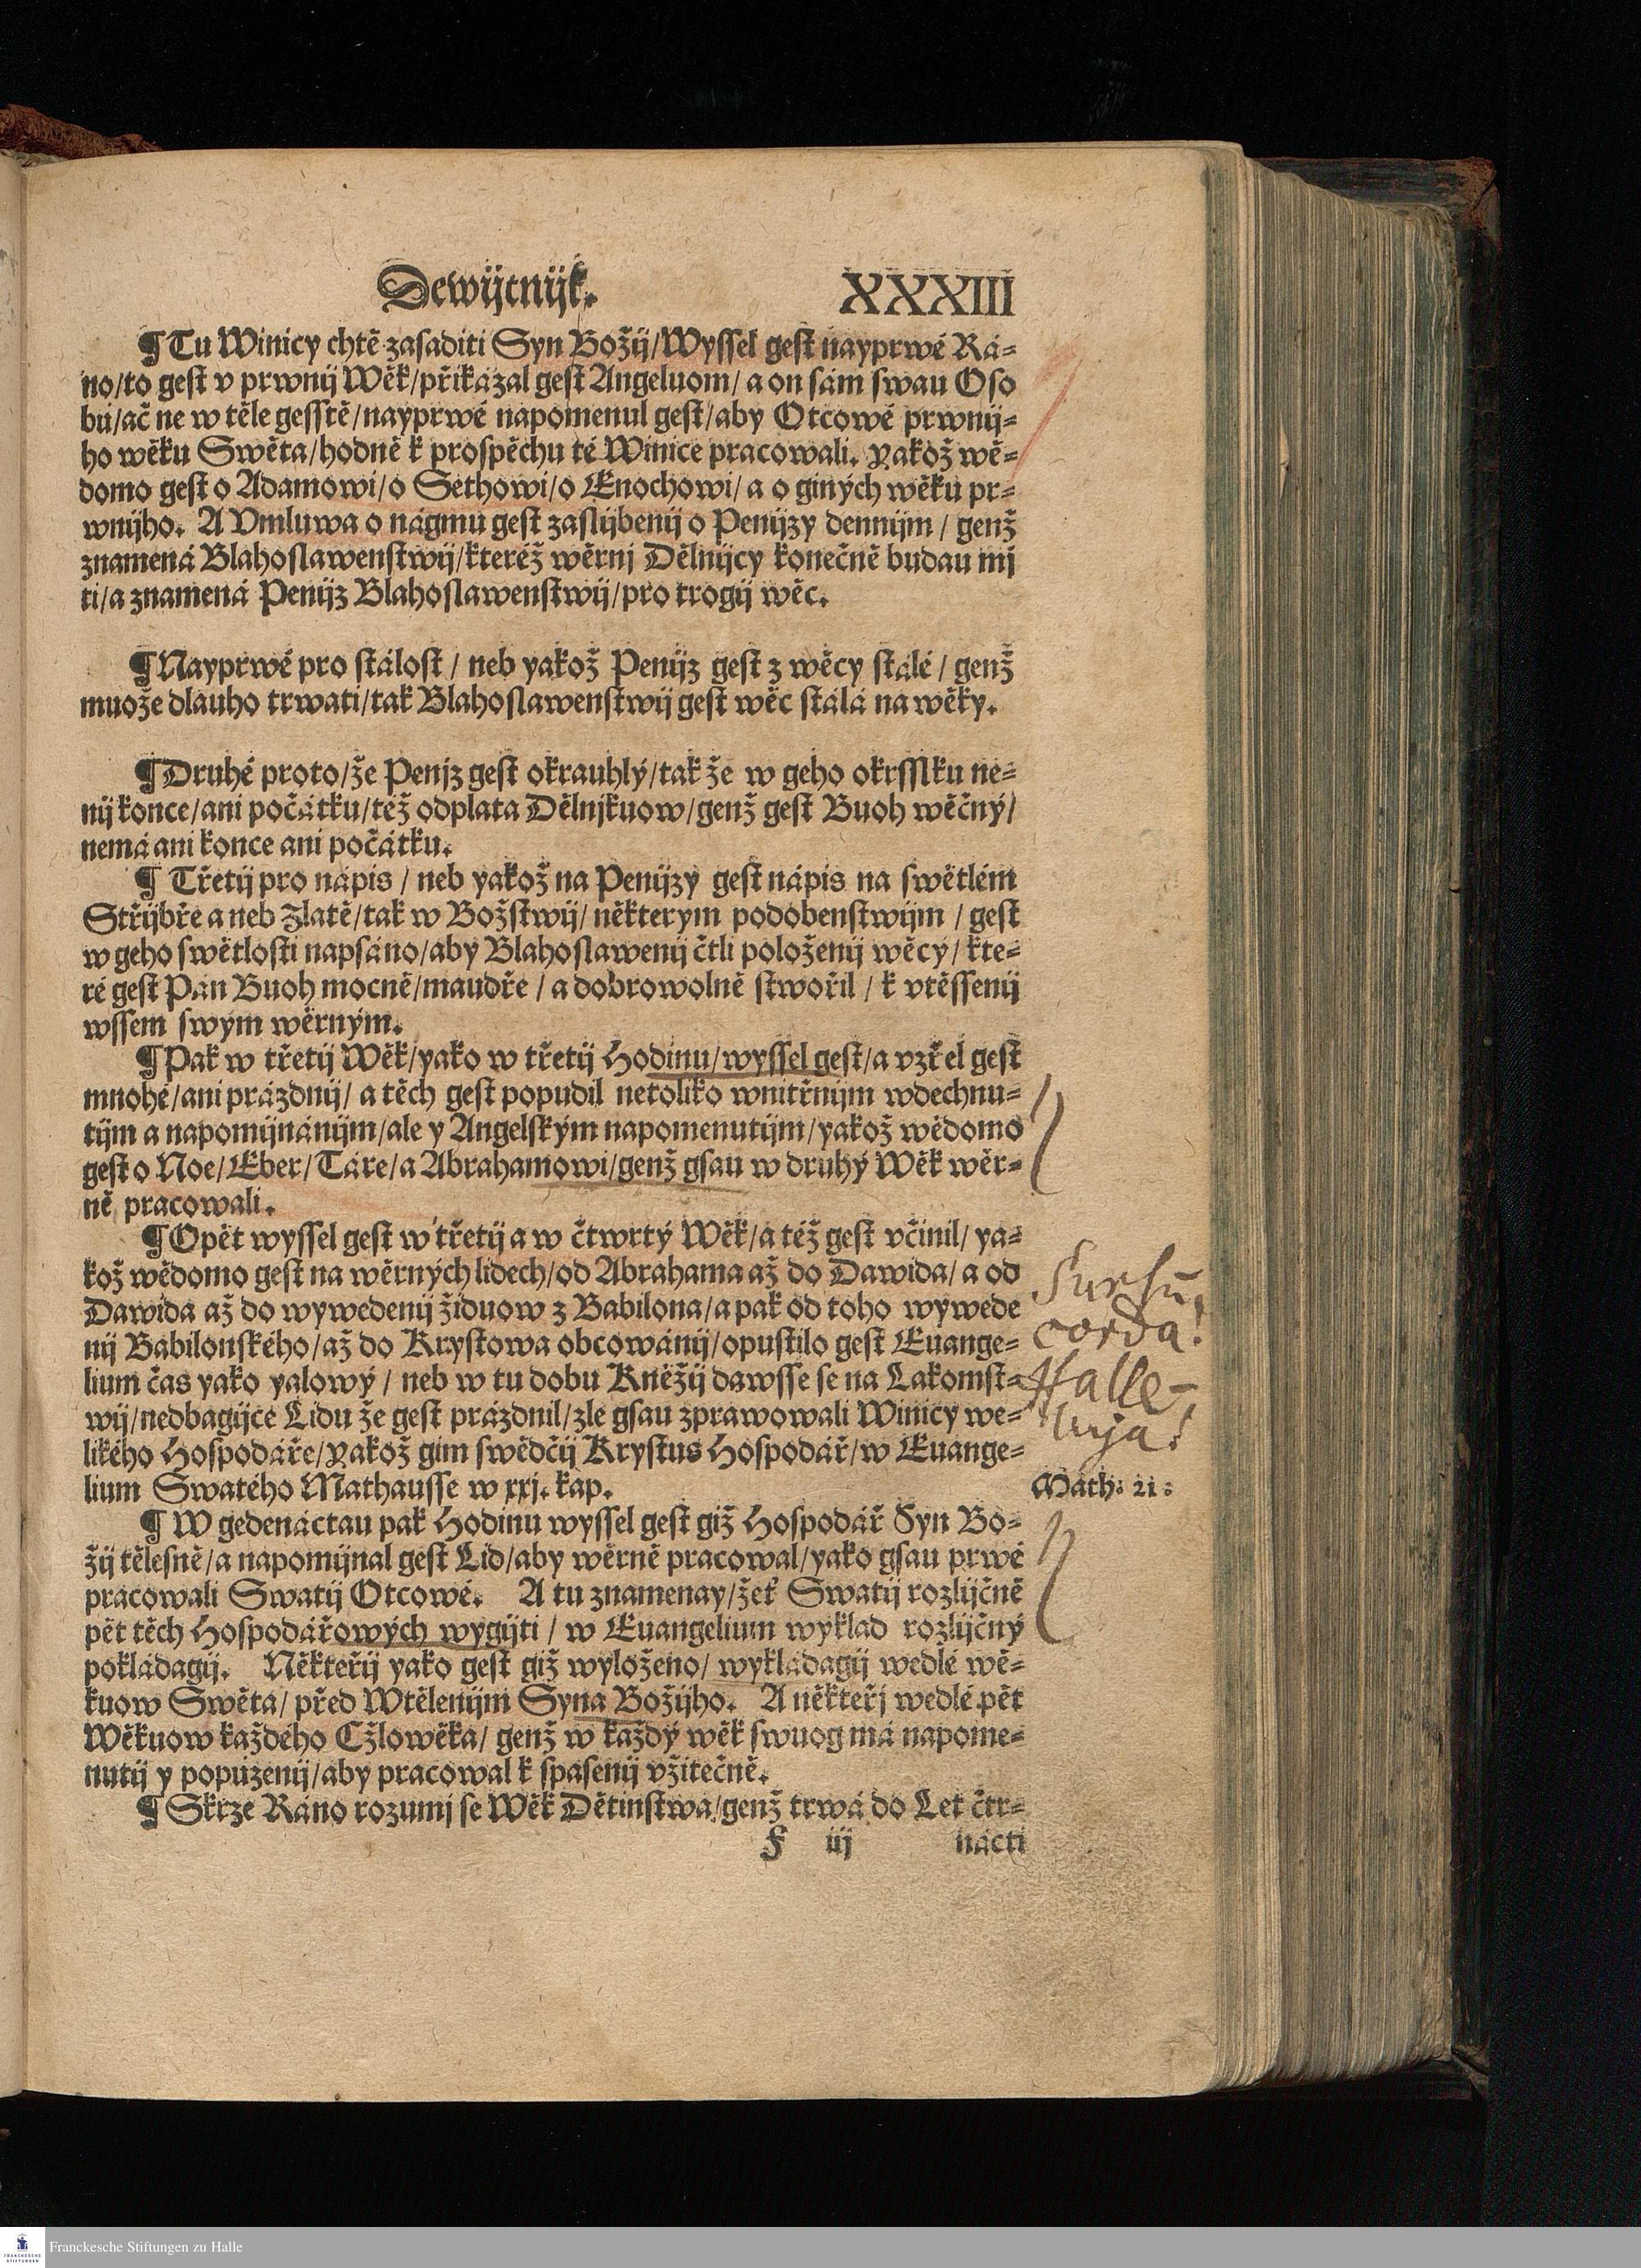 Dewijtnijk. XXXIII
¶ Tu Winicy chtě zasaditi Syn Božij/Wyssel gest nayprwé Rá=
no/to gest v prwnij Wěk/přikázal gest Angeluom/ a on sám swau Oso
bú/ač ne w těle gesstě/nayprwé napomenul gest/aby Otcowé prwnij=
ho wěku Swěta/hodně k prospěchu té Winice pracowali. Yakož wě=
domo gest o Adamowi/o Sethowi/o Enochowi/ a o giných wěku pr=
wnijho. A Vmluwa o nágmu gest zaslijbenij o Penijzy dennijm / genž
znamená Blahoslawenstwij/kteréž wěrnj Dělnijcy konečně budau mj
ti/a znamená Penijz Blahoslawenstwij/pro trogij wěc.
¶ Nayprwé pro stálost / neb yakož Penijz gest z wěcy stálé / genž
muože dlauho trwati/tak Blahoslawenstwij gest wěc stálá na wěky.
¶ Druhé proto/že Penjz gest okrauhlý/tak že w geho okrsslku ne=
nij konce/ani počátku/též odplata Dělnjkuow/genž gest Buoh wěčný/
nemá ani konce ani počátku.
¶ Třetij pro nápis / neb yakož na Penijzy gest nápis na swětlém
Střijbře a neb Zlatě/tak w Božstwij/ některým podobenstwijm / gest
w geho swětlosti napsáno/aby Blahoslawenij čtli položenij wěcy/ kte=
ré gest Pán Buoh mocně/maudře / a dobrowolně stwořil / k vtěssenij
wssem swým wěrným.
¶ Pak w třetij Wěk/yako w třetij Hodinu/wyssel gest/a vzřel gest
mnohé/ani prázdnij/ a těch gest popudil netoliko wnitřnijm wdechnu=
tijm a napomijnánijm/ale y Angelským napomenutijm/yakož wědomo
gest o Noe/Eber/Táre/a Abrahamowi/genž gsau w druhý Wěk wěr=
ně pracowali.
¶ Opět wyssel gest w třetij a w čtwrtý Wěk/a též gest včinil/ ya=
kož wědomo gest na wěrných lidech/od Abrahama až do Dawida/ a od
Dawida až do wywedenij židuow z Babilona/a pak od toho wywede
nij Babilonského/až do Krystowa obcowánij/opustilo gest Euange=
lium čas yako yalowý / neb w tu dobu Kněžij dawsse se na Lakomst=
wij/nedbagijce Lidu že gest prázdnil/zle gsau zprawowali Winicy we=
likého Hospodáře/Yakož gim swědčij Krystus Hospodář/w Euange=
lium Swatého Mathausse w xxj. kap.
Sursū
corda!
Halle-
luja!
Math: 21:
¶ W gedenáctau pak Hodinu wyssel gest giž Hospodář Syn Bo=
žij tělesně/a napomijnal gest Lid/aby wěrně pracowal/yako gsau prwé
pracowali Swatij Otcowé. A tu znamenay/žeť Swatij rozlijčně
pět těch Hospodářowých wygijti / w Euangelium wyklad rozlijčný
pokládagij. Někteřij yako gest giž wyloženo/ wykládagij wedlé wě=
kuow Swěta/ před Wtělenijm Syna Božijho. A někteřj wedlé pět
Wěkuow každého Cžlowěka/ genž w každý wěk swuog má napome=
nutij y popúzenij/aby pracowal k spasenij vžitečně.
¶ Skrze Ráno rozumj se Wěk Dětinstwa/genž trwá do Let čtr=
F iij nácti
Franckesche Stiftungen zu Halle